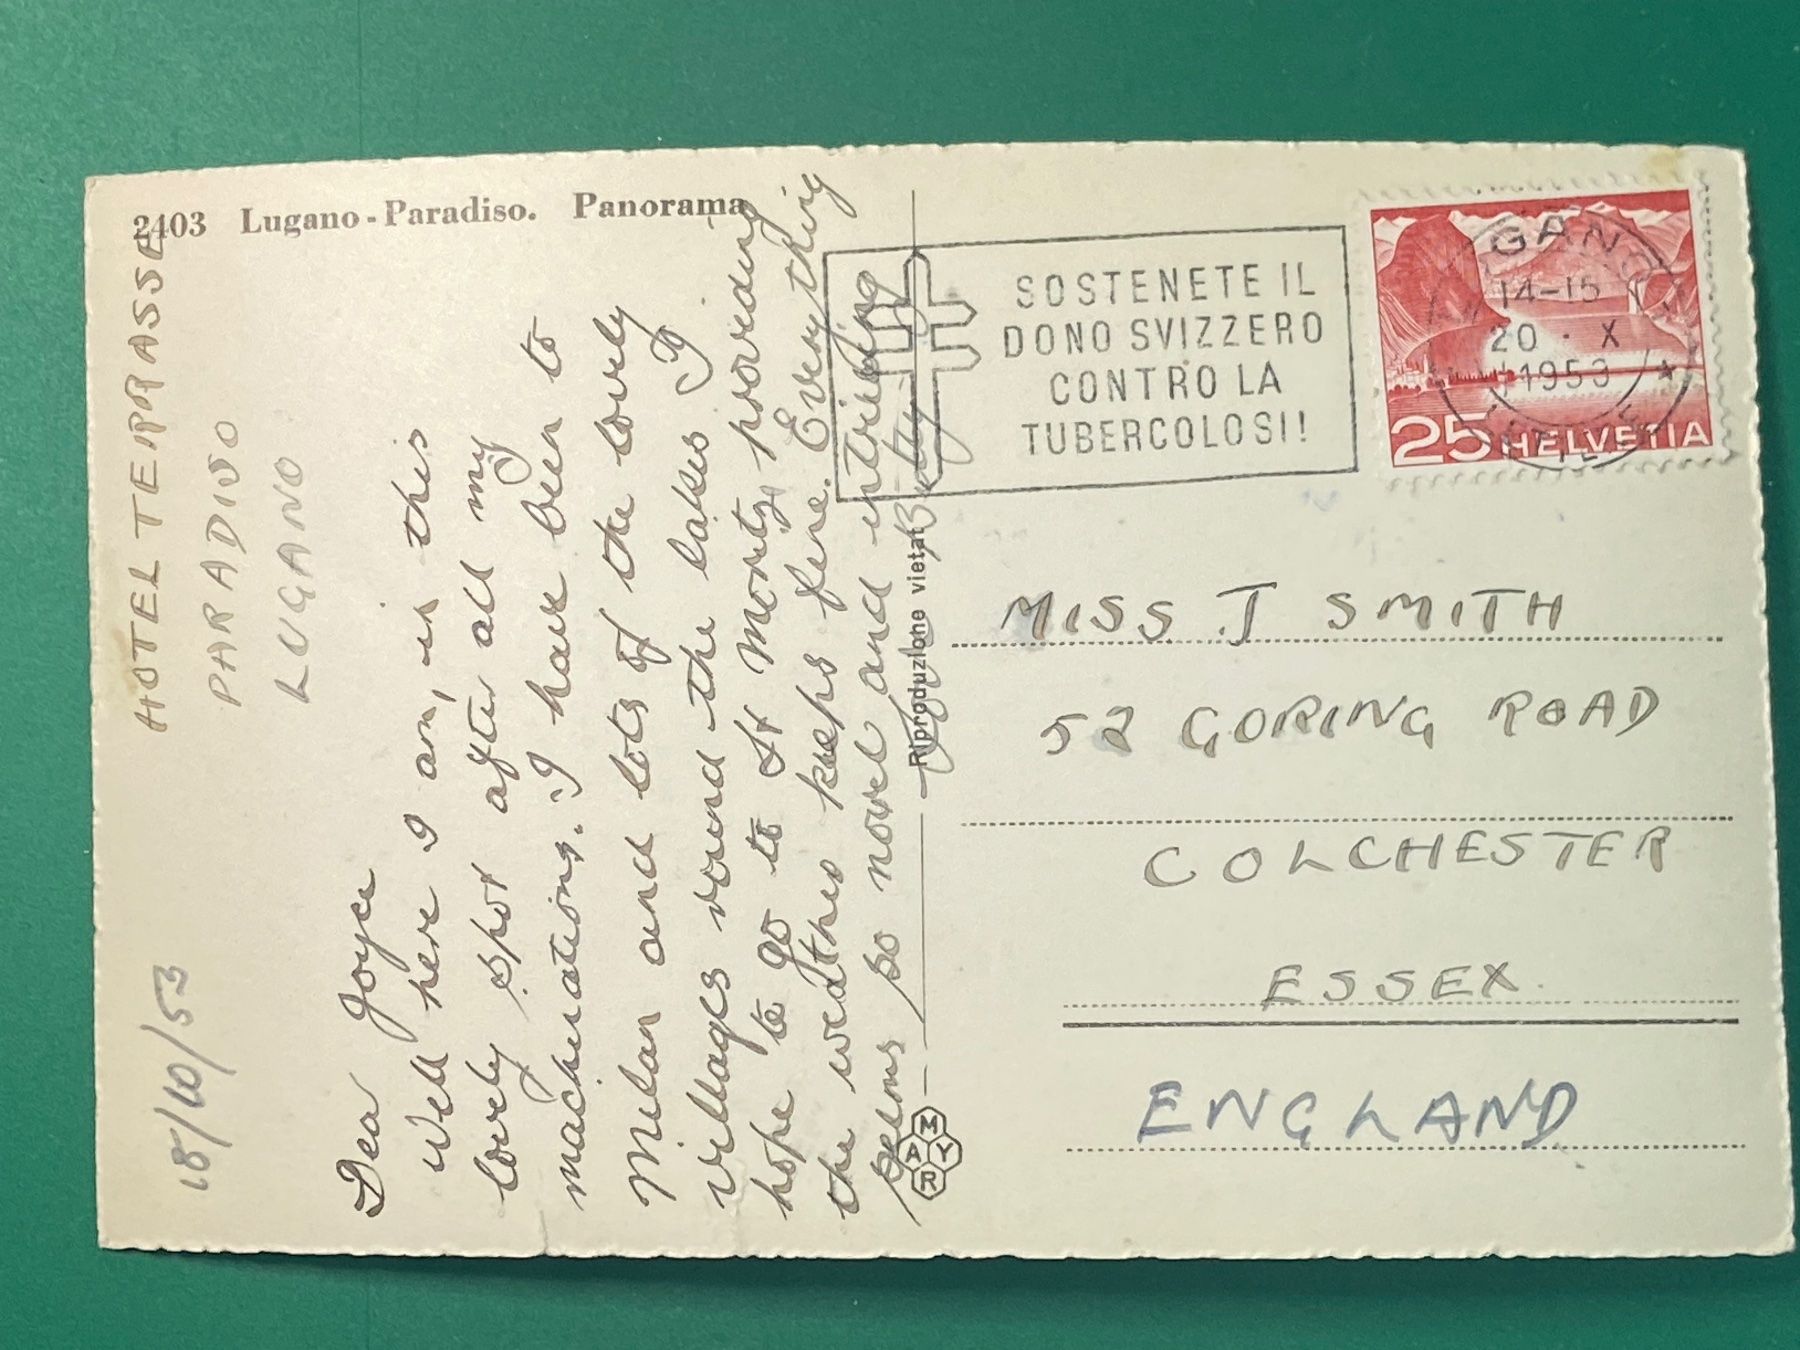 2403 Lugano-Paradiso. Panorama
HOTEL TERRASSE
PARADISO
LUGANO
18/10/53
Dear Joyce
Well here I am, in this
lovely spot after all my
machinations. I have been to
Milan and lots of the lovely
villages round the lakes. I
hope to go to St Moritz, providing
the weather keeps fine. Everything
seems so novel and intriguing
Betty
Riproduzione vietata
MAYR
SOSTENETE IL
DONO SVIZZERO
CONTRO LA
TUBERCOLOSI!
LUGANO 1
14-15
20 · X
1953
LETTERE
25 HELVETIA
MISS J SMITH
52 GORING ROAD
COLCHESTER
ESSEX.
ENGLAND